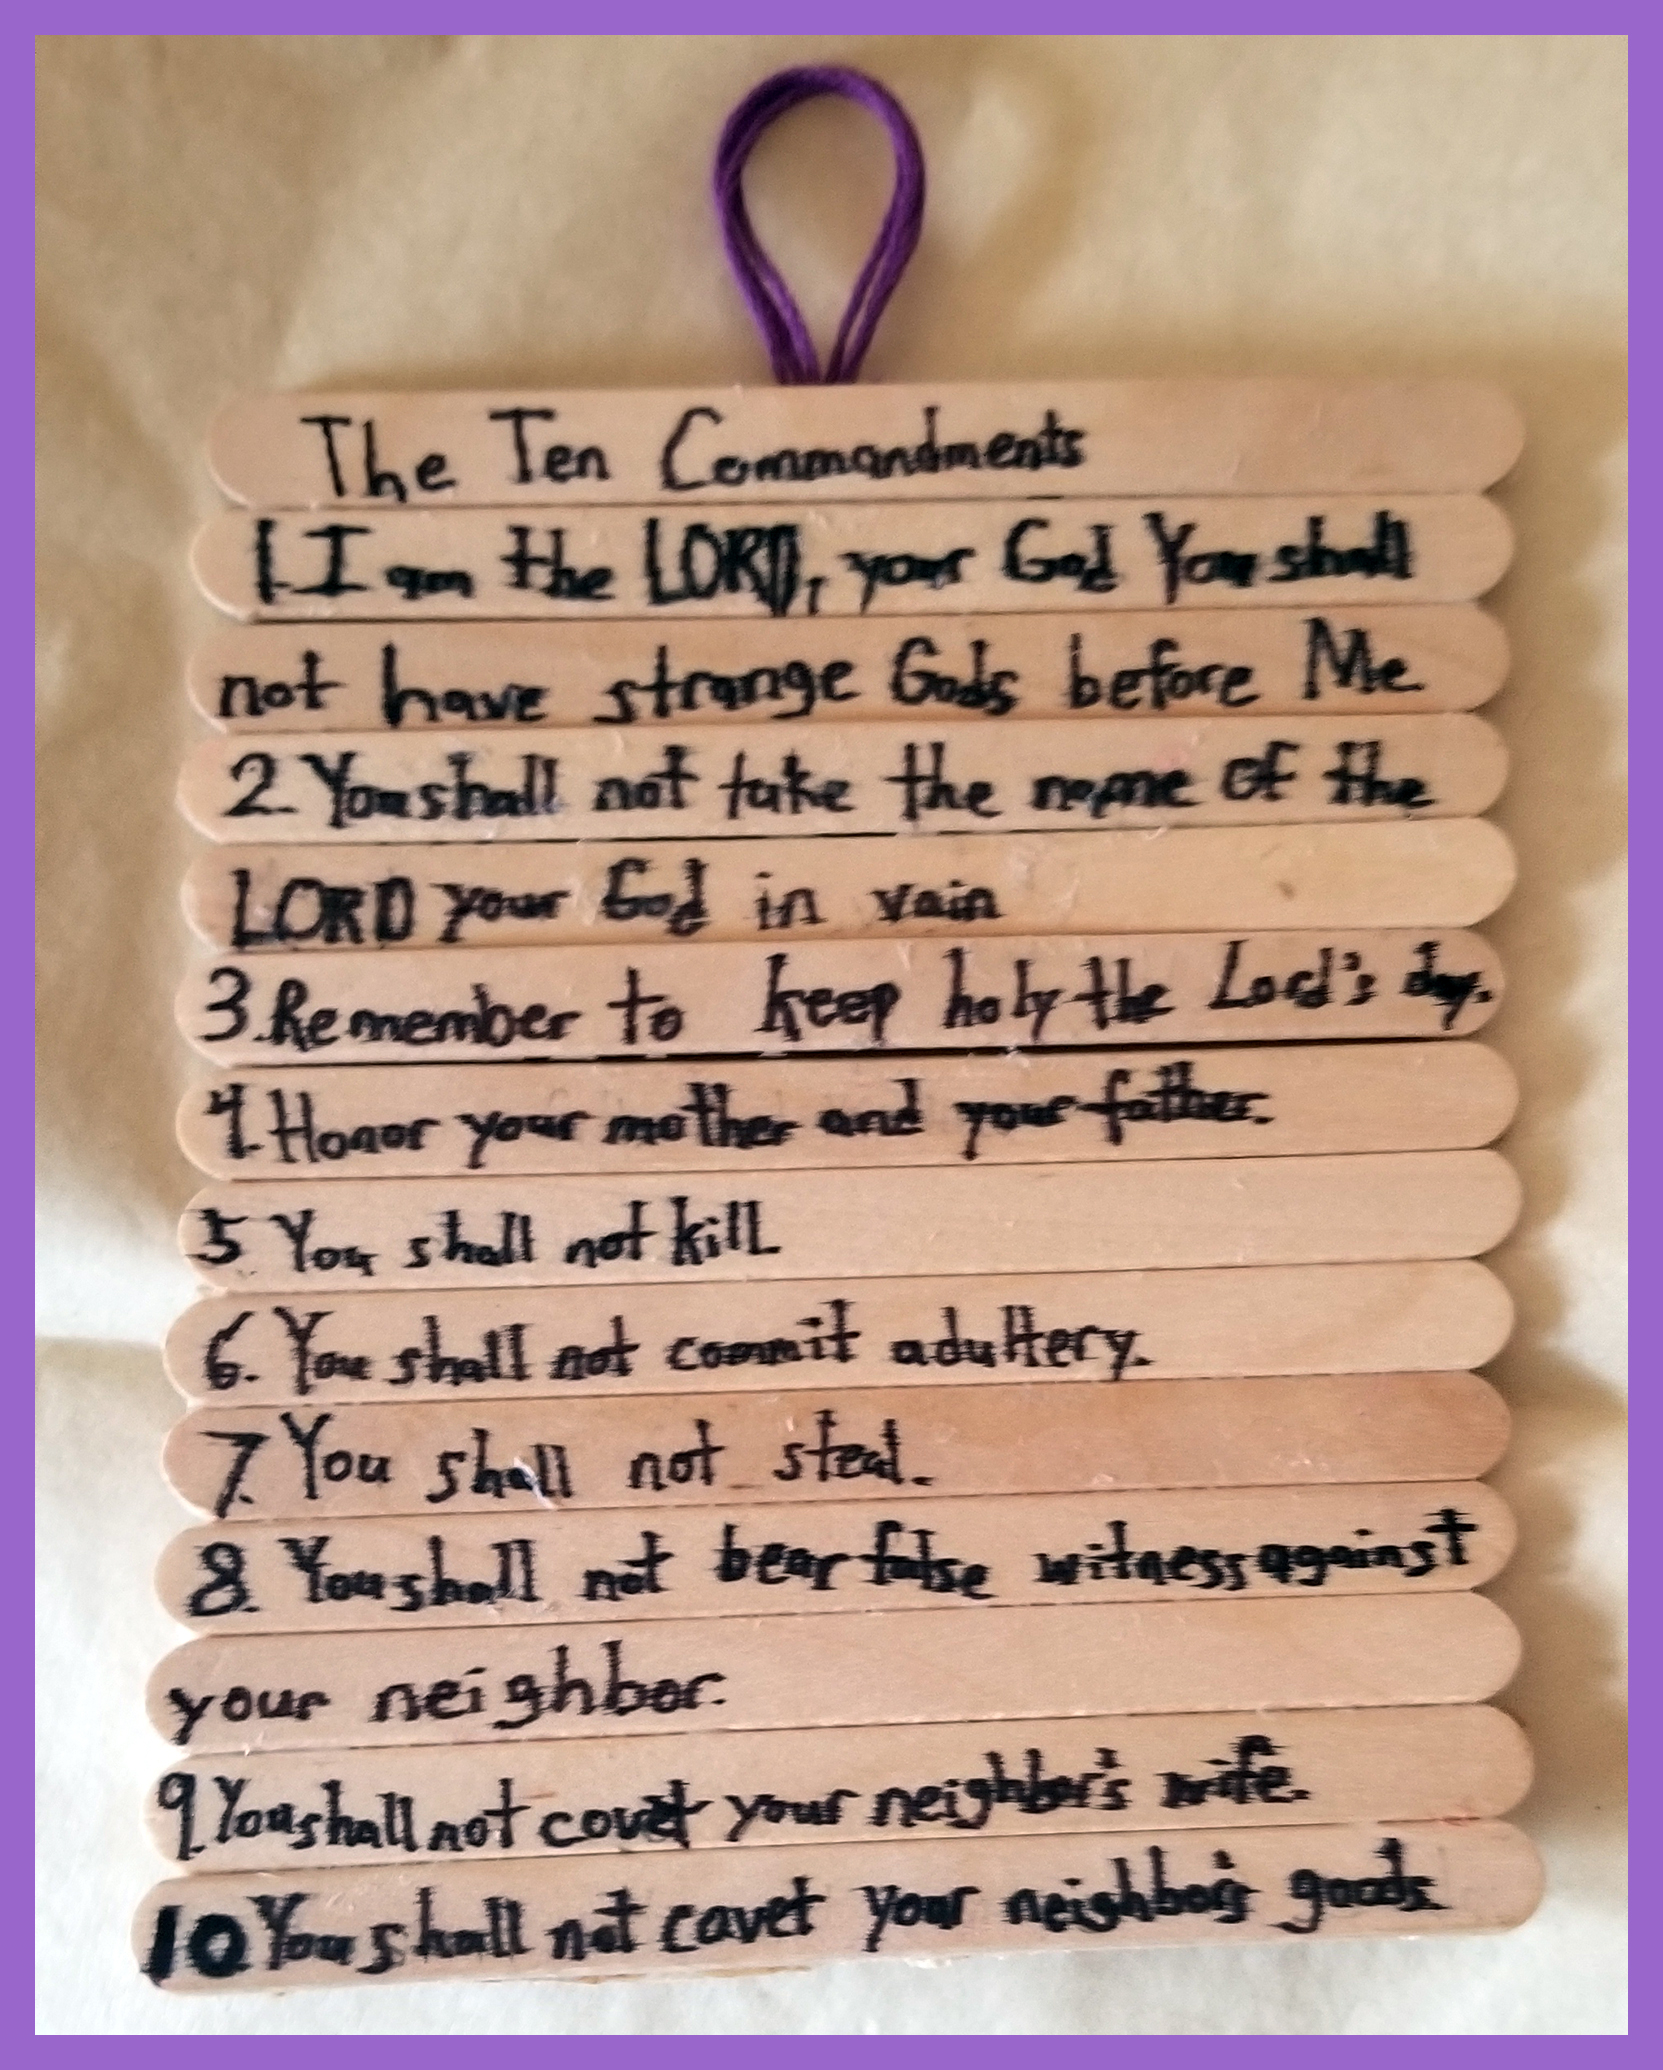 The Ten Commandments
1. I am the LORD, your God You shall
not have strange Gods before Me
2. You shall not take the name of the
LORD your God in vain
3. Remember to keep holy the Lord's day.
4. Honor your mother and your father.
5 You shall not kill.
6. You shall not commit adultery.
7. You shall not steal.
8. You shall not bear false witness against
your neighbor.
9. You shall not covet your neighbor's wife.
10 You shall not covet your neighbor's goods